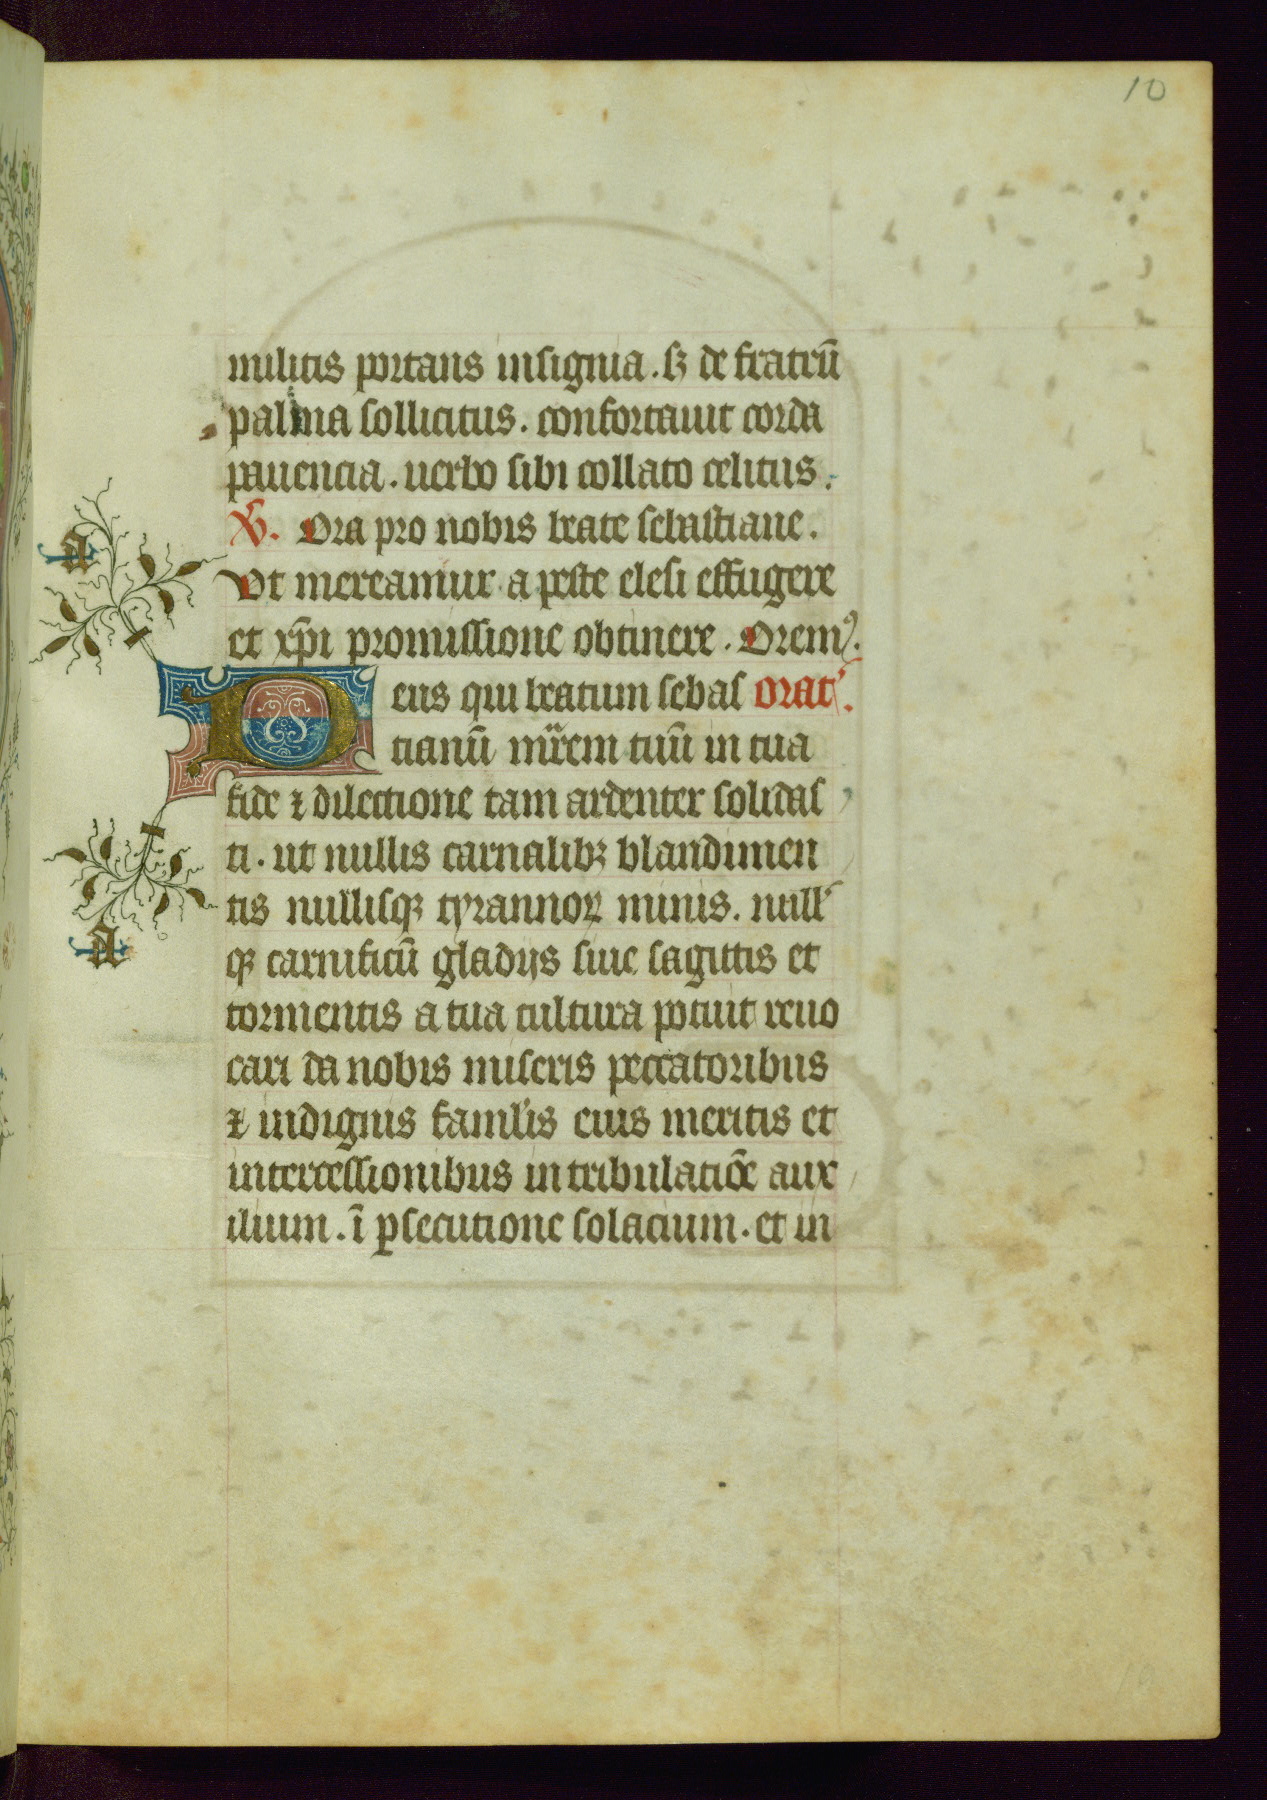 10
militis portans insignia. sꝫ de fratrū
palma sollicitus. confortauit corda
pauencia. uerbo sibi collato celitus.
V̄. Ora pro nobis beate sebastiane.
Vt mereamur a peste elesi effugere
et xp̄i promissione obtinere. Oremꝰ.
Deus qui beatum sebas orat'.
tianū mr̄em tuū in tua
fide ⁊ dilectione tam ardenter solidas
ti. ut nullis carnalibꝫ blandimen
tis nullisqꝫ tyrannoꝝ minis. null'
qꝫ carnificū gladijs siue sagittis et
tormentis a tua cultura potuit reuo
cari da nobis miseris peccatoribus
⁊ indignis famul'is eius meritis et
intercessionibus in tribulatiōe aux
ilium. ī ꝑsecutione solacium. et in